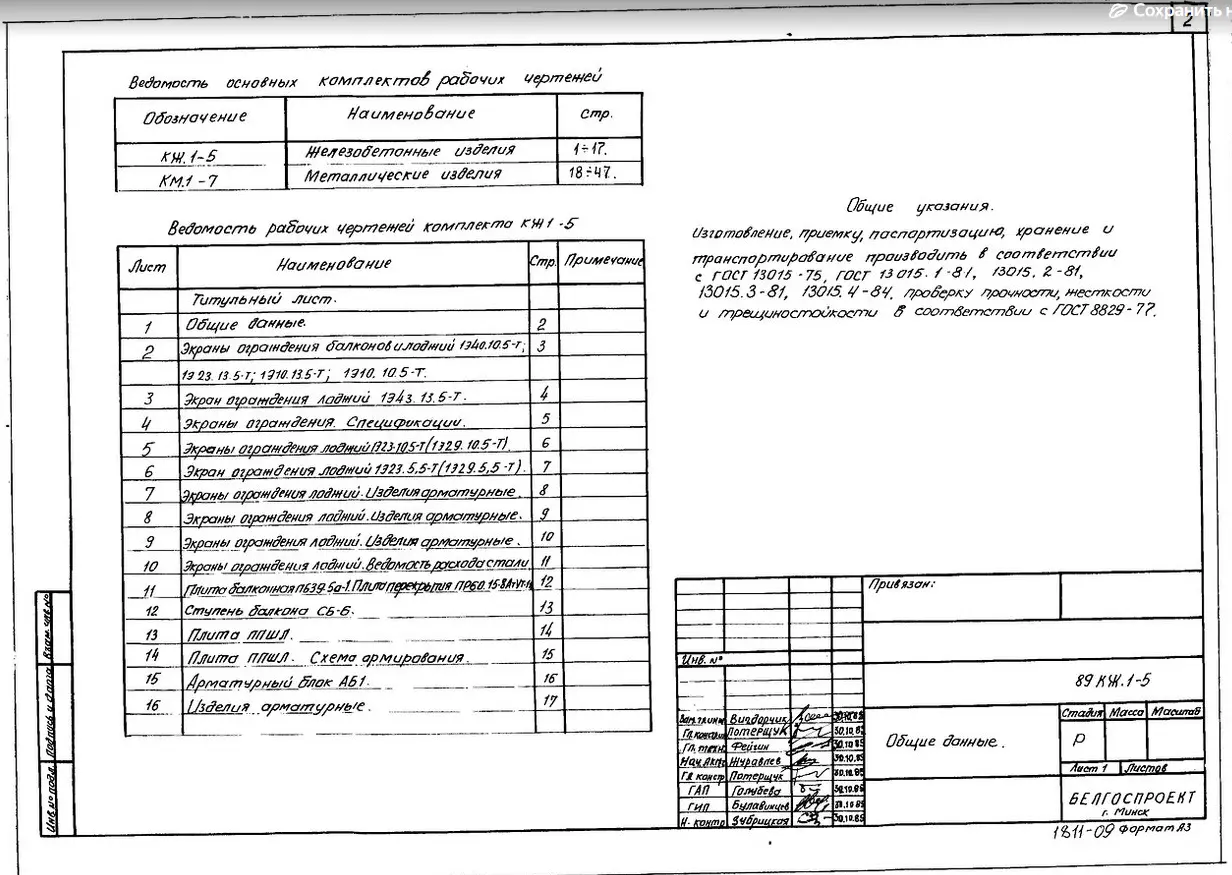 Сохранить н
2
Ведомость основных комплектов рабочих чертежей
Обозначение Наименование Стр.
КЖ.1-5 Железобетонные изделия 1÷17.
КМ.1-7 Металлические изделия 18÷47.
Ведомость рабочих чертежей комплекта КЖ1-5
Лист Наименование Стр. Примечание
Титульный лист.
1 Общие данные. 2
2 Экраны ограждения балконов и лоджий 1Э40.10.5-Т; 3
1Э23.13.5-Т; 1Э10.13.5-Т; 1Э10.10.5-Т.
3 Экран ограждения лоджий 1Э43.13.5-Т. 4
4 Экраны ограждения. Спецификации. 5
5 Экраны ограждения лоджий 1Э23.10,5-Т(1Э29.10.5-Т). 6
6 Экран ограждения лоджий 1Э23.5,5-Т(1Э29.5,5-Т). 7
7 Экраны ограждения лоджий. Изделия арматурные. 8
8 Экраны ограждения лоджий. Изделия арматурные. 9
9 Экраны ограждения лоджий. Изделия арматурные. 10
10 Экраны ограждения лоджий. Ведомость расхода стали 11
11 Плита балконная ПБ39-5а-1. Плита перекрытия 12
12 Ступень балкона СБ-6. 13
13 Плита ППШЛ. 14
14 Плита ППШЛ. Схема армирования. 15
15 Арматурный блок АБ1. 16
16 Изделия арматурные. 17
Общие указания.
Изготовление, приемку, паспортизацию, хранение и
транспортирование производить в соответствии
с ГОСТ 13015-75, ГОСТ 13015.1-81, 13015.2-81,
13015.3-81, 13015.4-84, проверку прочности, жесткости
и трещиностойкости в соответствии с ГОСТ 8829-77.
Привязан:
Инв. №
89 КЖ.1-5
Вигдорчик
Потерщук 30.10.85
Гл. техн. Фейгин 30.10.85
Журавлев 30.10.85
Гл. констр Потерщук 30.10.85
ГАП Голубева 30.10.85
ГИП Булавинцев 30.10.85
Н. контр Зубрицкая 30.10.85
Общие данные.
Стадия Масса Масштаб
Р
Лист 1 Листов
БЕЛГОСПРОЕКТ
г. Минск
1811-09 Формат А3
Взам. инв. №
Подпись и дата
Инв. № подл.